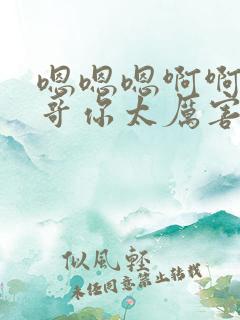 嗯嗯嗯啊啊
哥你太厉害
似風輕
未经同意禁止转载